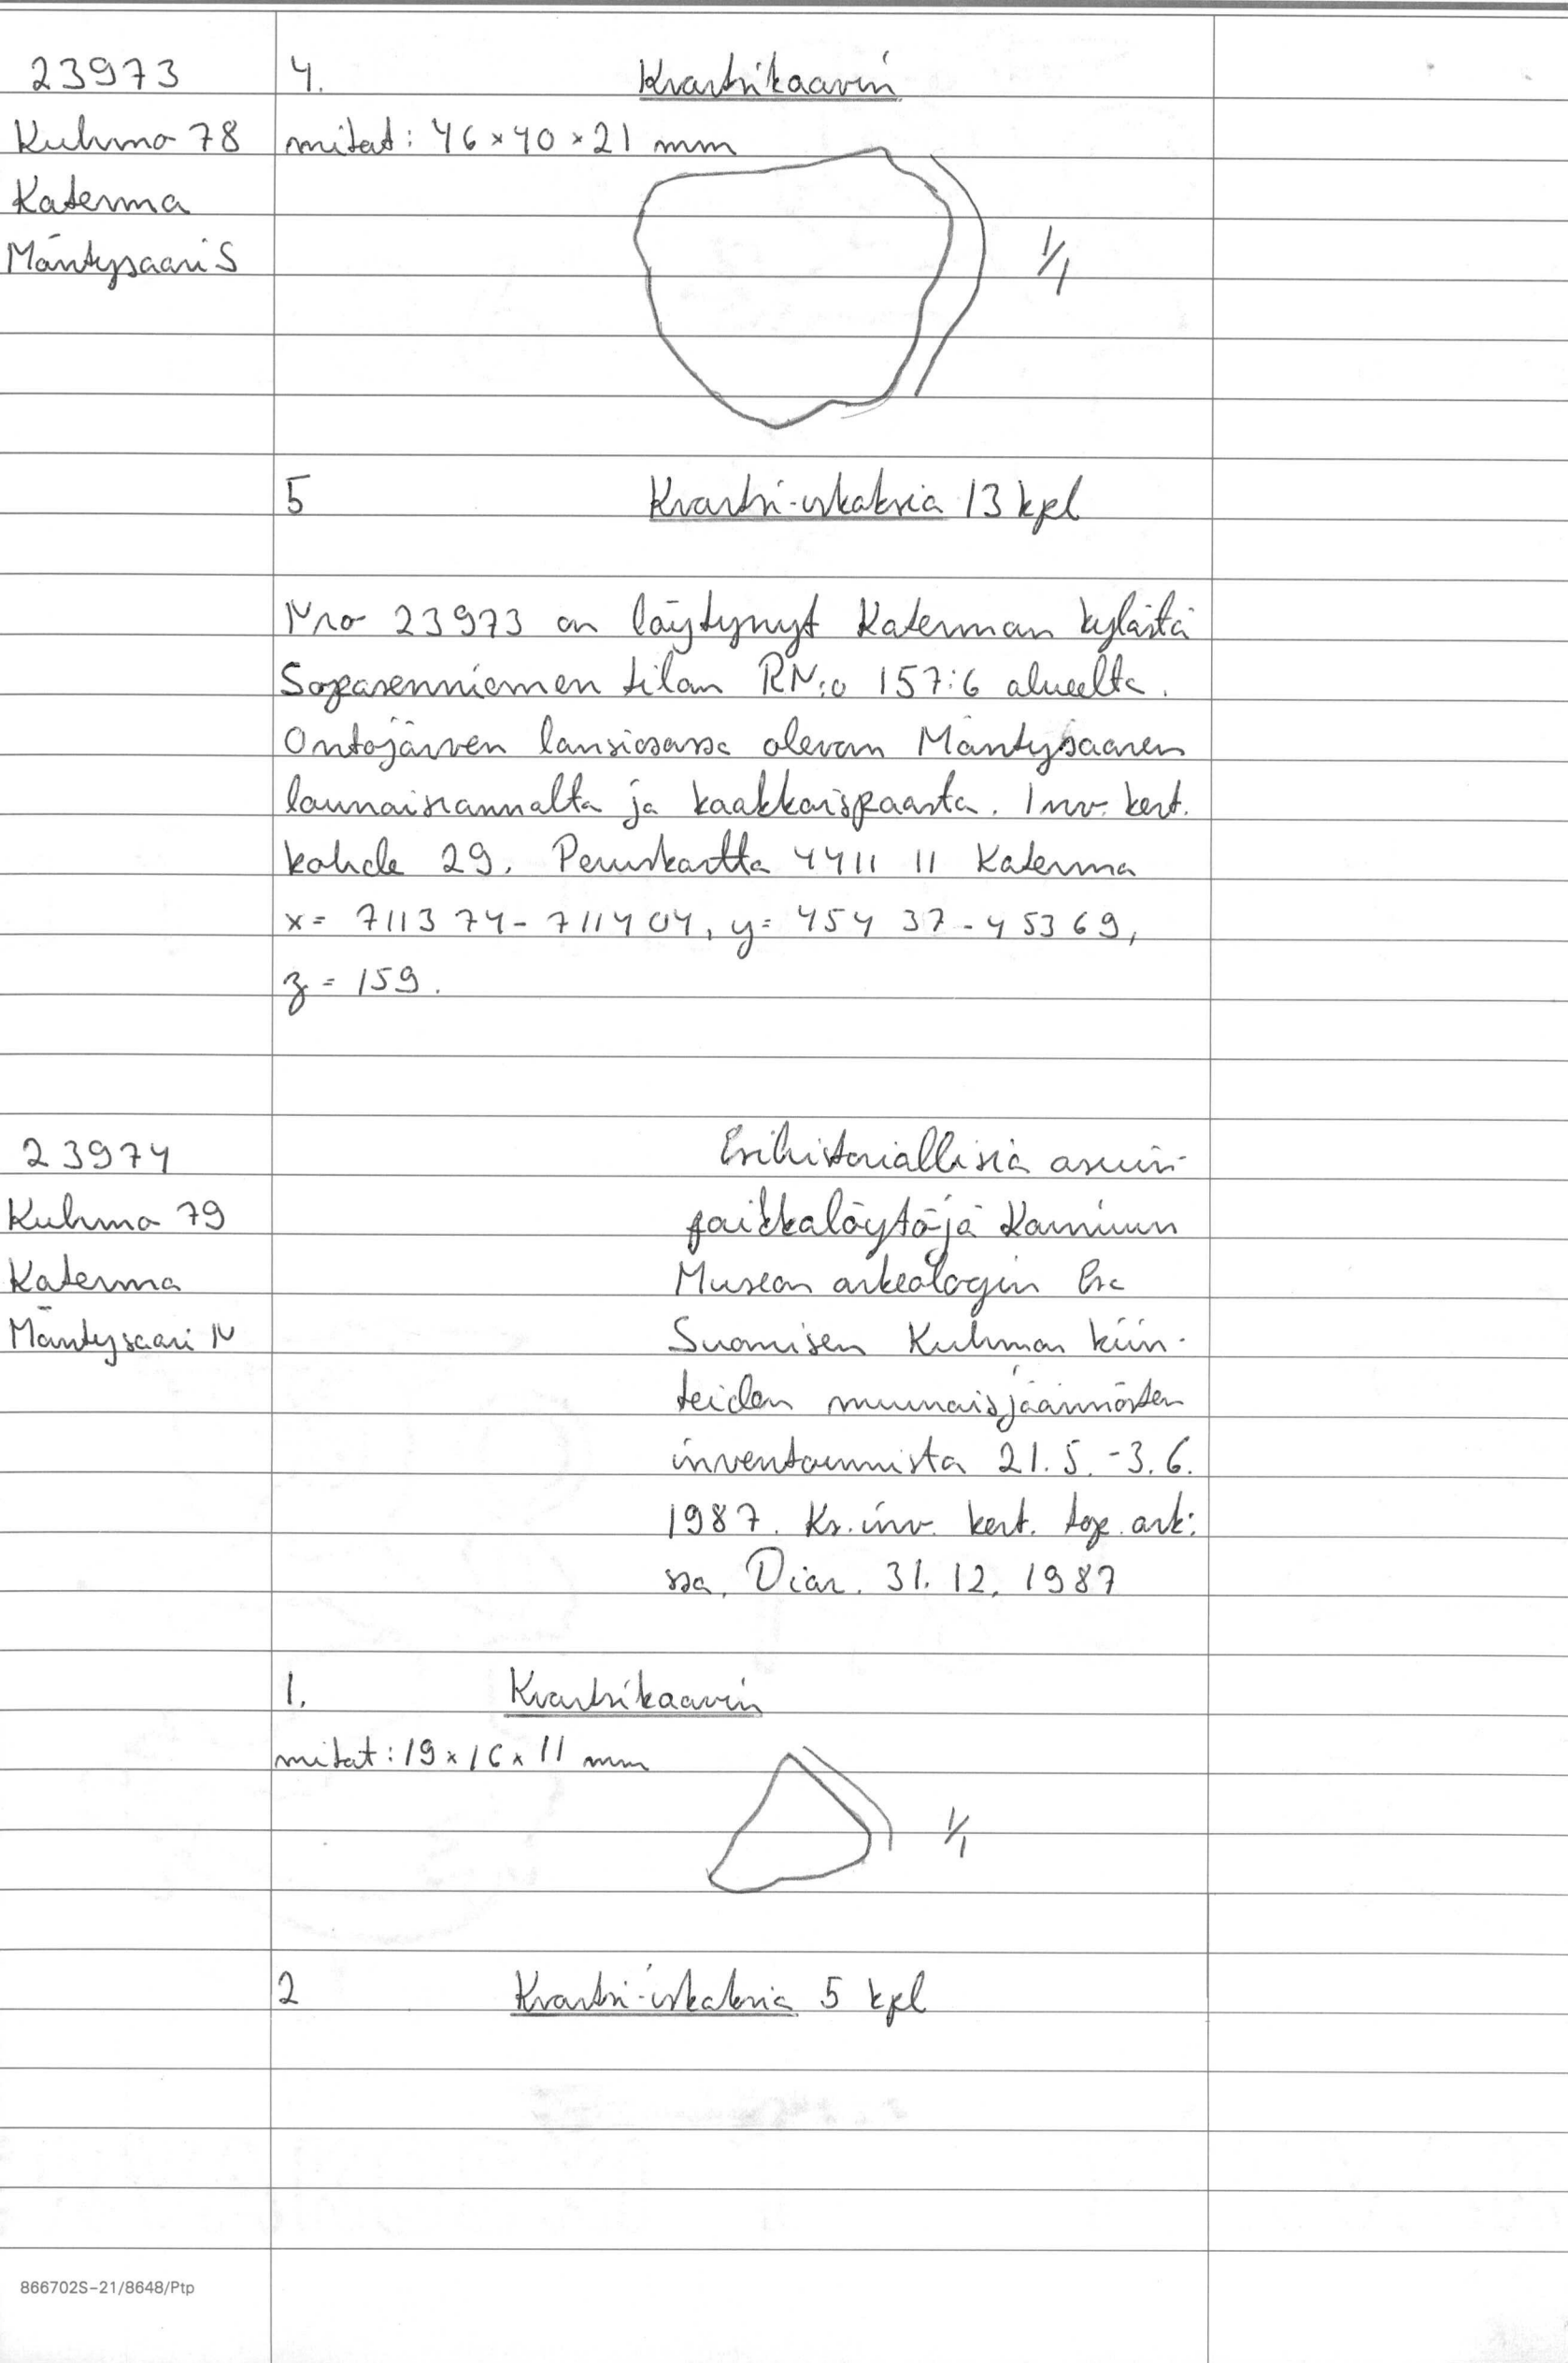 23973 4. Kvartsikaavin
Kuhmo 78 mitat: 46 x 40 x 21 mm
Katerma
Mäntysaari S 1/1
5 Kvartsi-iskoksia 13 kpl
Nro 23973 on löytynyt Katerman kylästä
Sopasenniemen tilan RN:o 157:6 alueelta.
Ontojärven länsiosassa olevan Mäntysaaren
lounaisrannalta ja kaakkoispäästä. Inv. kert.
kohde 29. Peruskartta 4411 11 Katerma
x= 711374-711404, y= 454 37-45369,
z = 159.
23974 Esihistoriallisia asuin-
Kuhmo 79 paikkalöytöjä Kainuun
Katerma Museon arkeologin Esa
Mäntysaari N Suomisen Kuhmon kiin-
teiden muinaisjäännösten
inventoinnista 21.5.-3.6.
1987. Ks. inv. kert. top. ark:
ssa. Diar. 31.12.1987
1. Kvartsikaavin
mitat: 19 x 16 x 11 mm
1/1
2 Kvartsi-iskoksia 5 kpl
866702S-21/8648/Ptp